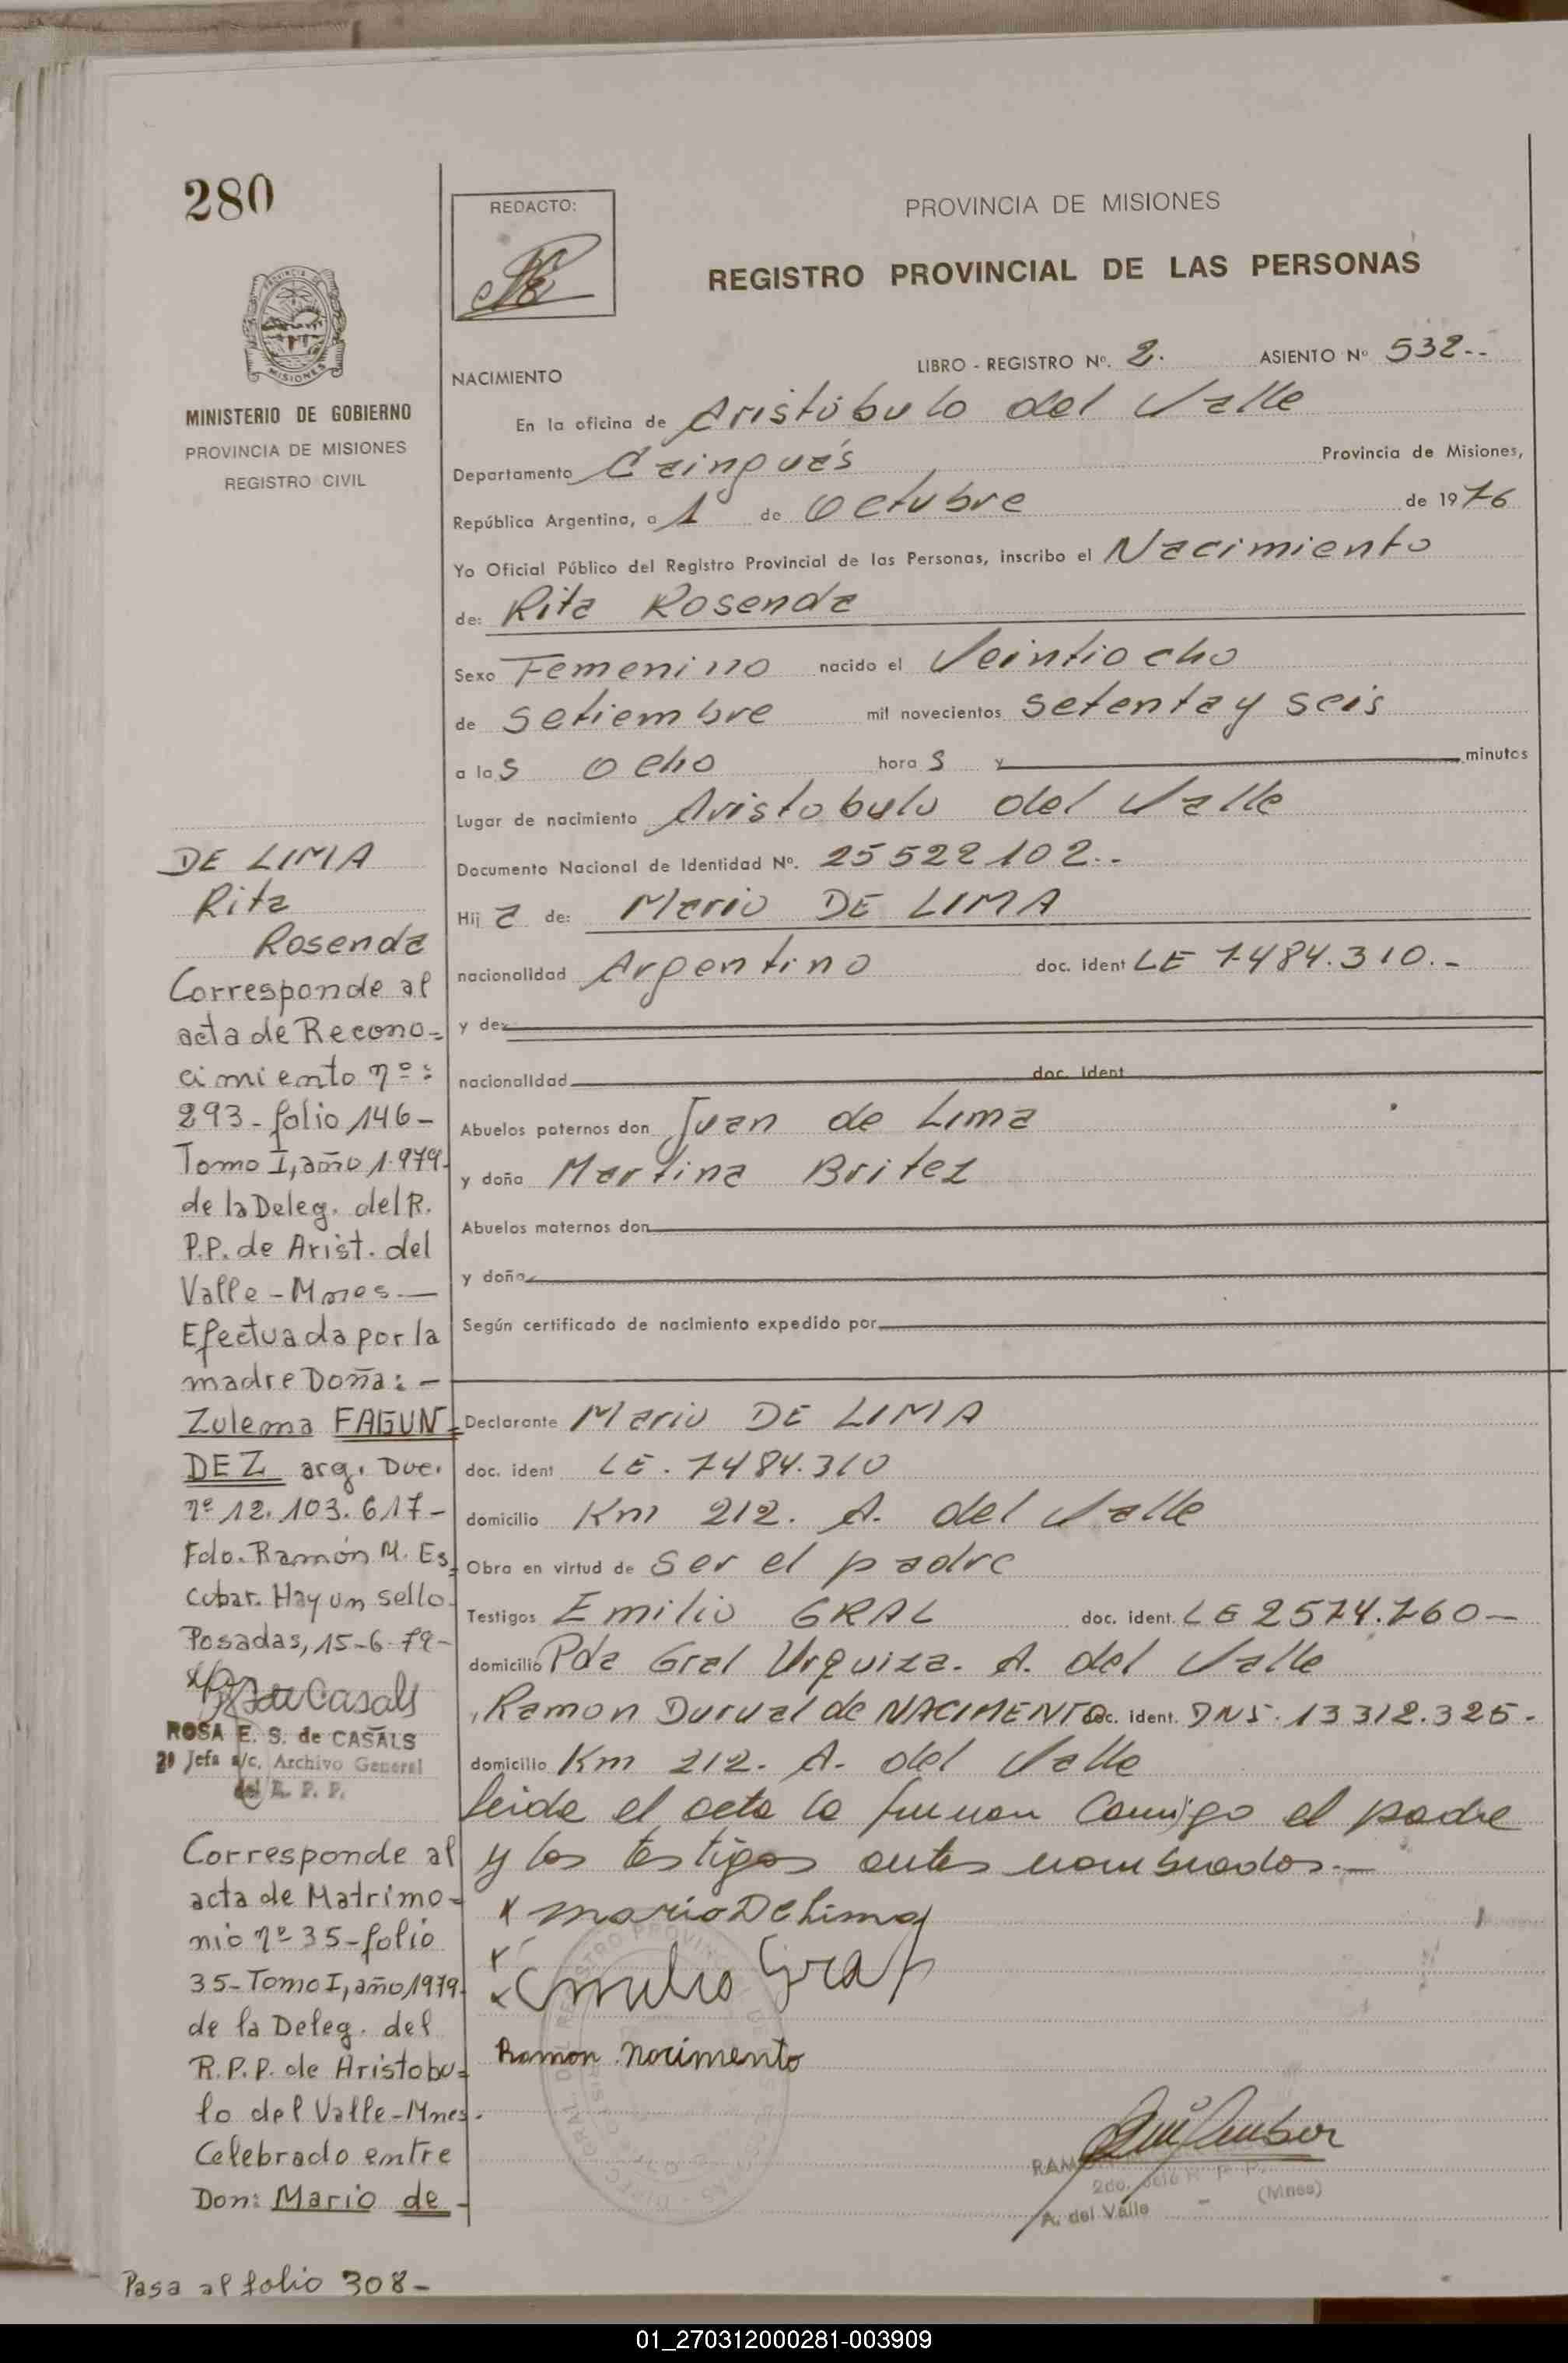 280
MINISTERIO DE GOBIERNO
PROVINCIA DE MISIONES
REGISTRO CIVIL
DE LIMA
Rita
Rosenda
Corresponde al
acta de Recono=
cimiento nº:
293-folio 146-
Tomo I, año 1.979.
de la Deleg. del R.
P.P. de Arist. del
Valle-Mnes.—
Efectuada por la
madre Doña: -
Zulema FAGUN=
DEZ arg. Doc.
nº 12.103.617-
Fdo. Ramón M. Es=
cobar. Hay un sello.
Posadas, 15-6-79-
ROSA E. S. de CASALS
2º Jefa a/c. Archivo General
del R. P. P.
Corresponde al
acta de Matrimo-
nio nº 35-folio
35-Tomo I, año 1979.
de la Deleg. del
R.P.P. de Aristobu=
lo del Valle-Mnes.
Celebrado entre
Don: Mario de -
Pasa al folio 308-
REDACTO:
PROVINCIA DE MISIONES
REGISTRO PROVINCIAL DE LAS PERSONAS
LIBRO - REGISTRO Nº. 2. ASIENTO Nº 532--
NACIMIENTO
En la oficina de Aristóbulo del Valle
Departamento Caingúas Provincia de Misiones,
República Argentina, a 1º de Octubre de 1976
Yo Oficial Público del Registro Provincial de las Personas, inscribo el Nacimiento
de: Rita Rosenda
Sexo Femenino nacido el Veintiocho
de setiembre mil novecientos setenta y seis
a las ocho horas y minutos
Lugar de nacimiento Aristobulo del Valle
Documento Nacional de Identidad Nº. 25522102..
Hija de: Mario DE LIMA
nacionalidad Argentino doc. ident LE 7484.310.-
y de:
nacionalidad doc. ident
Abuelos paternos don Juan de Lima
y doña Martina Britez
Abuelos maternos don
y doña
Según certificado de nacimiento expedido por
Declarante Mario DE LIMA
doc. ident LE. 7484.310
domicilio Km 212. A. del Valle
Obra en virtud de ser el padre
Testigos Emilio GRAL doc. ident. LE 2574.760—
domicilio Pda Gral Urquiza. A. del Valle
, Ramon Durual de NACIMENTO doc. ident. DNI. 13312.325.
domicilio Km 212. A. del Valle
leida el acta la firman conmigo el padre
y los testigos antes nombrados.—
x Mario De Lima
x
x Emilio Graf
Ramon Nacimento
A. del Valle - (Mnes)
01_270312000281-003909